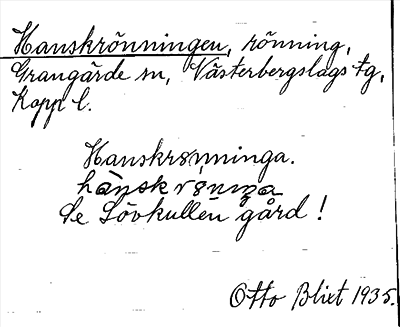 Hanskrönningen, rönning,
Grangärde sn, Västerbergslags tg,
Kopp l.
Hanskrønninga.
hànskrøninga
Se Lövkullen gård!
Otto Blixt 1935.